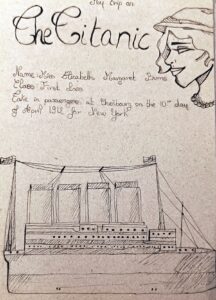 My trip on
The Titanic
Name: Miss Elizabeth Margaret Burns
Class: First Class
Take in passengers at Cherbourg on the 10th day
of April 1912 for New York